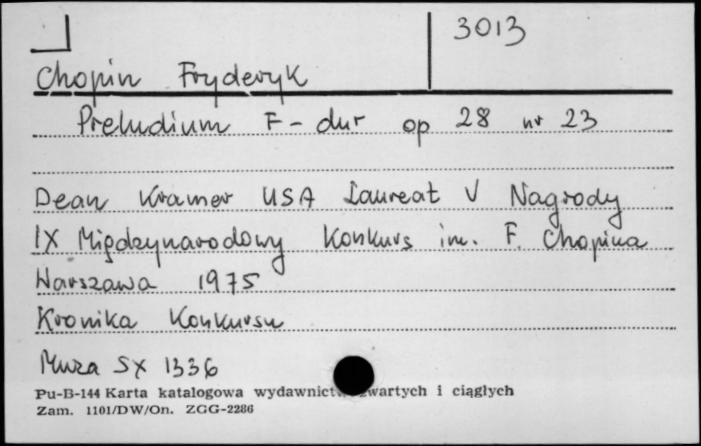 3013
Chopin Fryderyk
Preludium F-dur op 28 nr 23
Dean Kramer USA Laureat V Nagrody
IX Międzynarodowy Konkurs im. F. Chopina
Warszawa 1975
Kronika Konkursu
Muza SX 1336
Pu-B-144 Karta katalogowa wydawnictw zwartych i ciągłych
Zam. 1101/DW/On. ZGG-2286